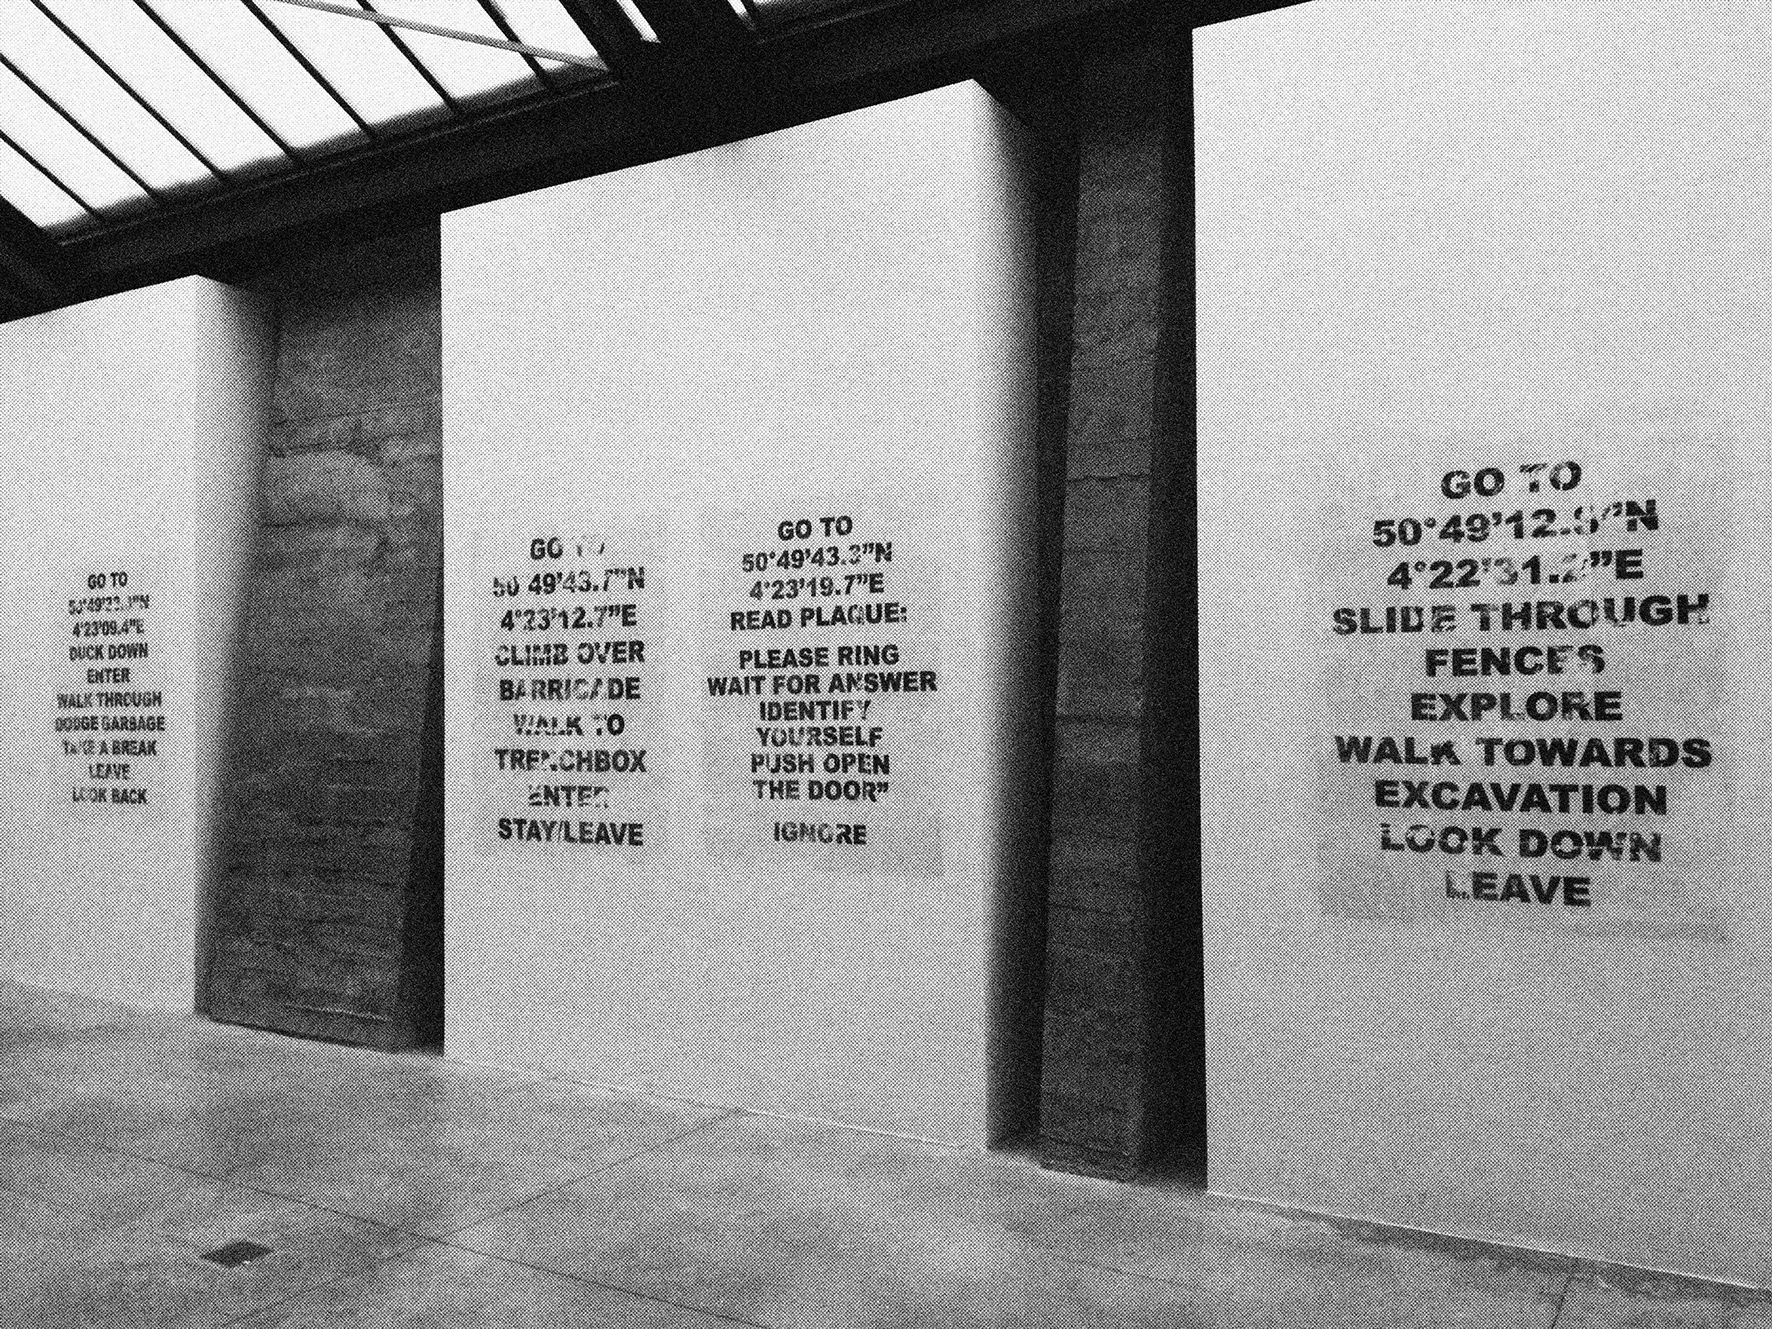 GO TO
4°23'09.4"E
DUCK DOWN
ENTER
WALK THROUGH
DODGE GARBAGE
TAKE A BREAK
LEAVE
LOOK BACK
GO TO
50°49'43.7"N
4°23'12.7"E
CLIMB OVER
BARRICADE
WALK TO
TRENCHBOX
ENTER
STAY/LEAVE
GO TO
50°49'43.3"N
4°23'19.7"E
READ PLAQUE:
PLEASE RING
WAIT FOR ANSWER
IDENTIFY
YOURSELF
PUSH OPEN
THE DOOR”
IGNORE
GO TO
SLIDE THROUGH
FENCES
EXPLORE
WALK TOWARDS
EXCAVATION
LOOK DOWN
LEAVE